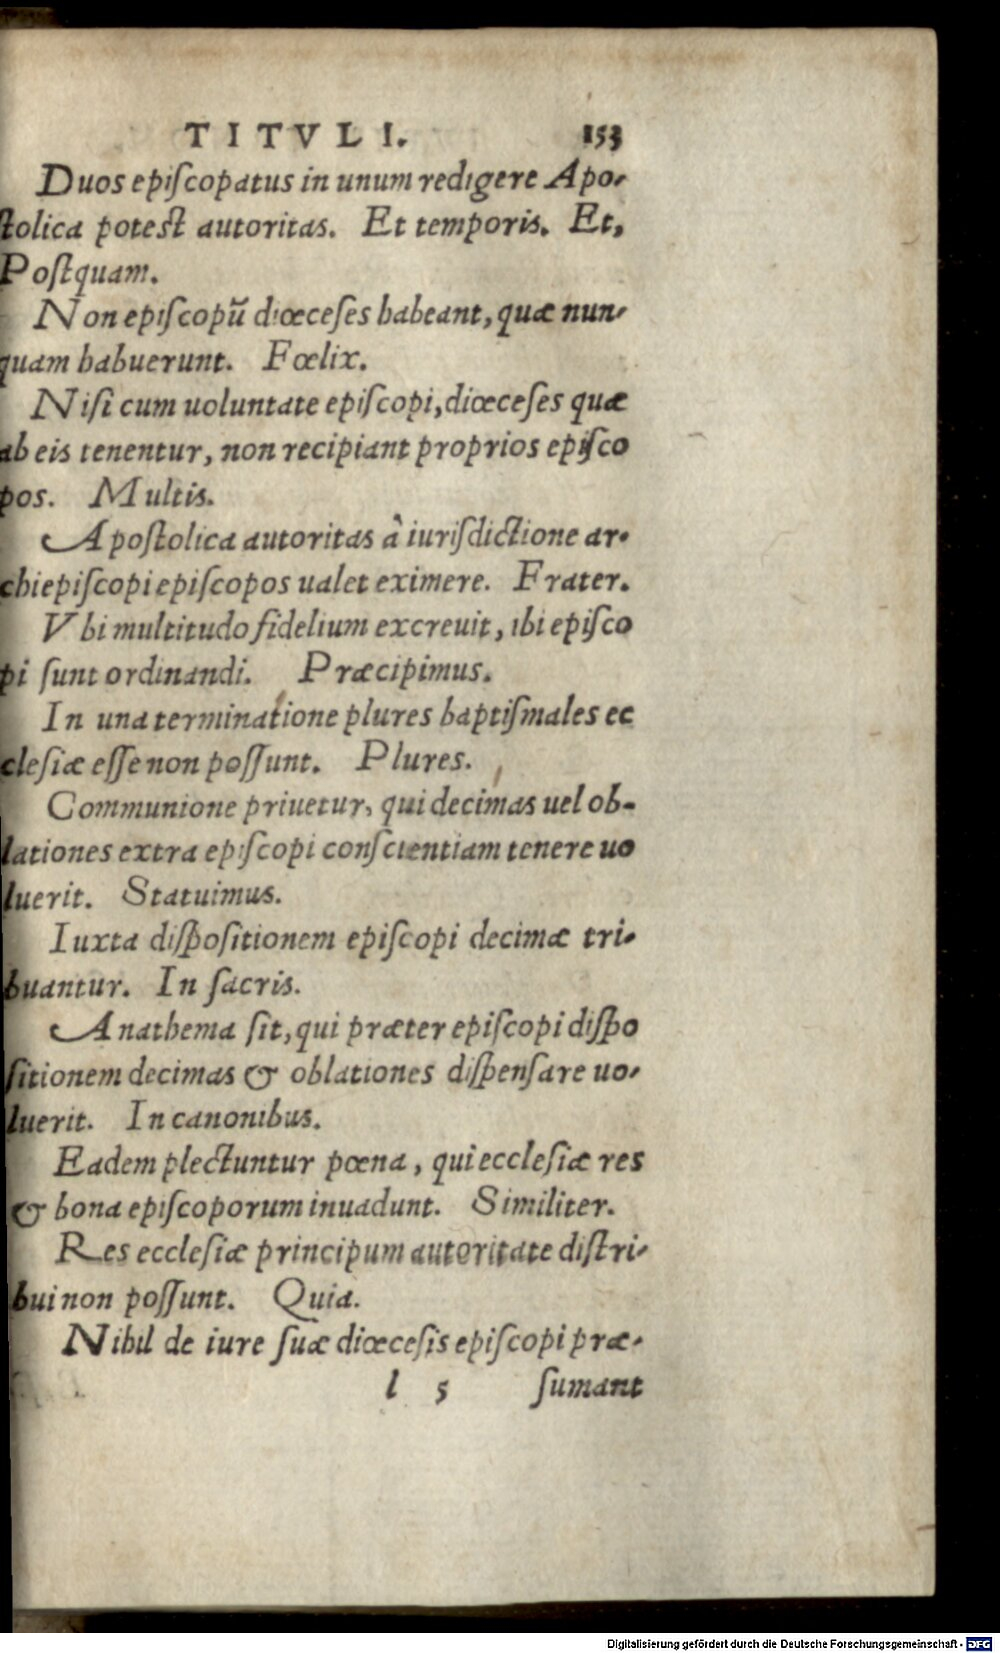 TITVLI. 153
Duos epiſcopatus in unum redigere Apo-
ſtolica poteſt autoritas. Et temporis. Et,
Poſtquam.
Non epiſcopū diœceſes habeant, quæ nun-
quam habuerunt. Fœlix.
Niſi cum uoluntate epiſcopi, diœceſes quæ
ab eis tenentur, non recipiant proprios epiſco
pos. Multis.
Apoſtolica autoritas à iurisdictione ar-
chiepiſcopi epiſcopos ualet eximere. Frater.
Vbi multitudo fidelium excreuit, ibi epiſco
pi ſunt ordinandi. Præcipimus.
In una terminatione plures baptiſmales ec
cleſiæ eſſe non poſſunt. Plures.
Communione priuetur, qui decimas uel ob-
lationes extra epiſcopi conſcientiam tenere uo
luerit. Statuimus.
Iuxta diſpoſitionem epiſcopi decimæ tri-
buantur. In ſacris.
Anathema ſit, qui præter epiſcopi diſpo
ſitionem decimas & oblationes diſpenſare uo-
luerit. In canonibus.
Eadem plectuntur pœna, qui eccleſiæ res
& bona epiſcoporum inuadunt. Similiter.
Res eccleſiæ principum autoritate diſtri-
bui non poſſunt. Quia.
Nihil de iure ſuæ diœceſis epiſcopi præ-
l 5 ſumant
Digitalisierung gefördert durch die Deutsche Forschungsgemeinschaft - DFG